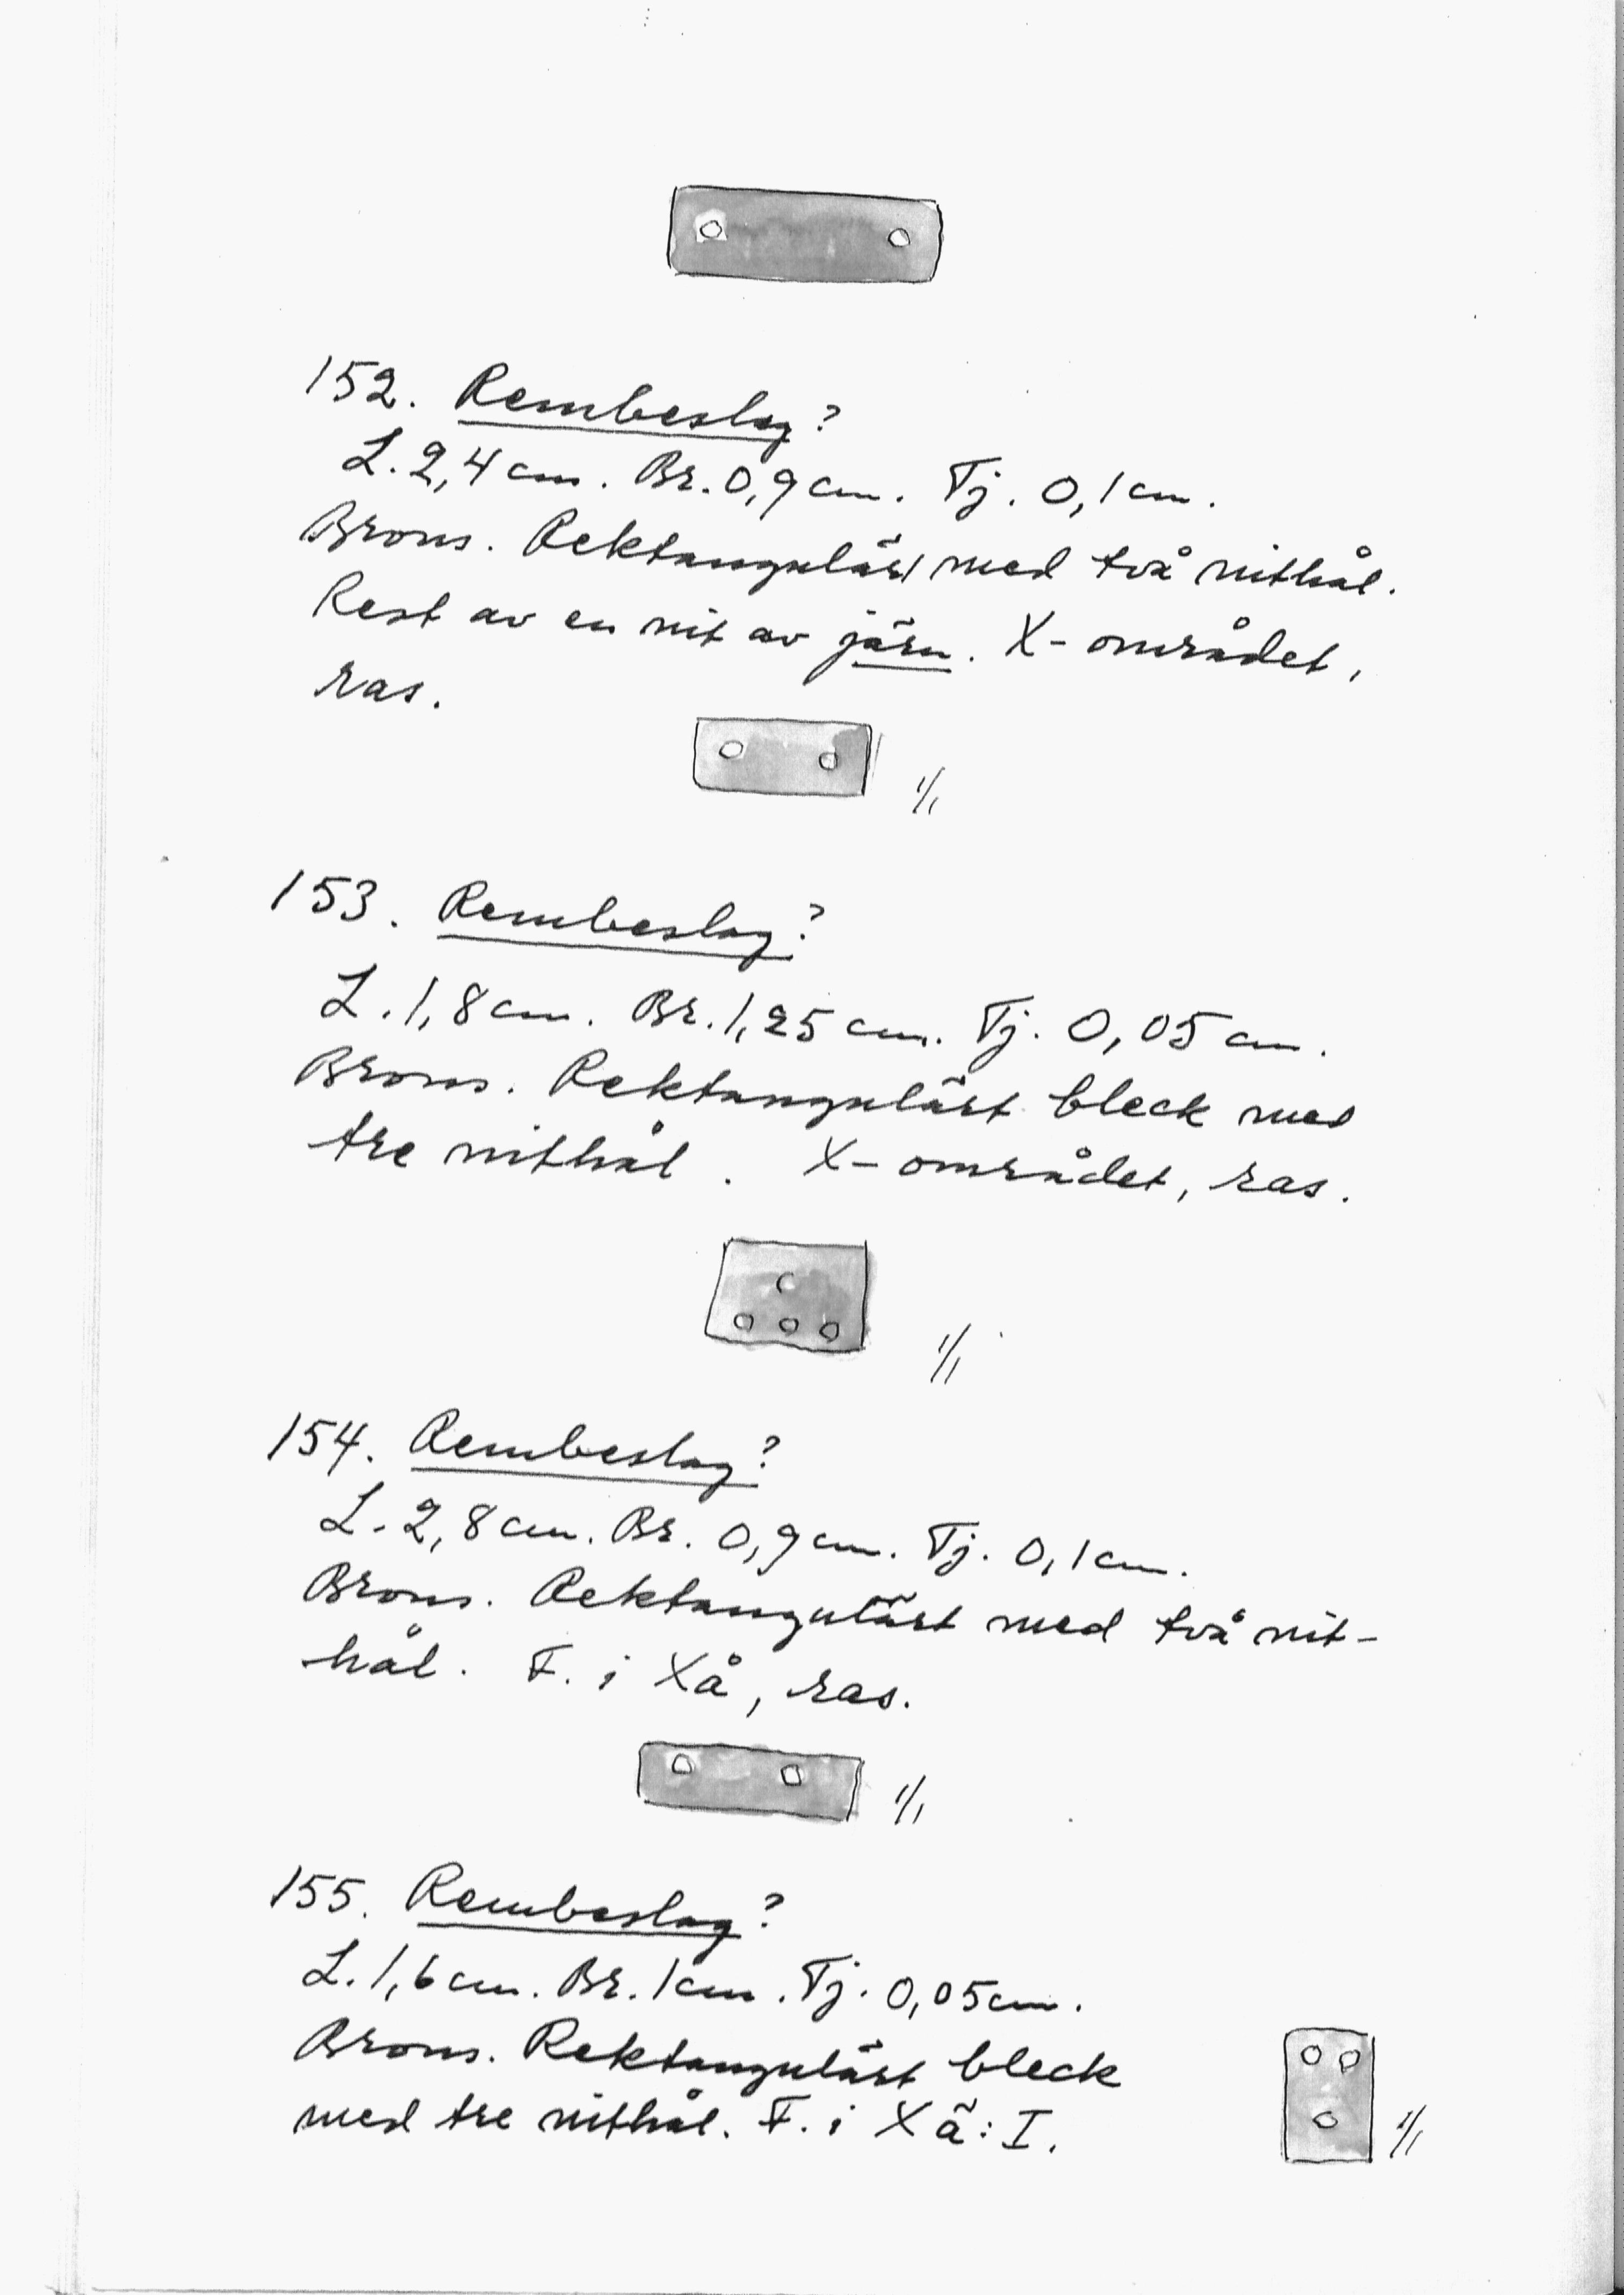 152. Rembeslag?
L. 2,4 cm. Br. 0,9 cm. Tj. 0,1 cm.
Brons. Rektangulärt med två nithål.
Rest av en nit av järn. X-området,
ras.
1/1
153. Rembeslag?
L. 1,8 cm. Br. 1,25 cm. Tj. 0,05 cm.
Brons. Rektangulärt bleck med
tre nithål. X-området, ras.
1/1
154. Rembeslag?
L. 2,8 cm. Br. 0,9 cm. Tj. 0,1 cm.
Brons. Rektangulärt med två nit-
hål. F. i Xå, ras.
1/1
155. Rembeslag?
L. 1,6 cm. Br. 1 cm. Tj. 0,05 cm.
Brons. Rektangulärt bleck
med tre nithål. F. i Xä: I.
1/1